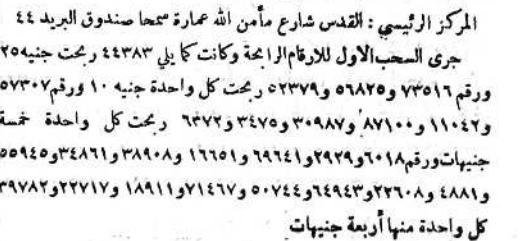 المركز الرئيسي : القدس شارع مأمن الله عمارة سمحا صندوق البريد ٤٤
جرى السحب الاول للارقام الرابحة وكانت كما يلي ٤٤٣٨٣ ربحت جنيه ٢٥
ورقم ٧٣٥١٦ و٥٦٨٢٥ و٥٢٣٧٩ ربحت كل واحدة جنيه ١٠ ورقم ٥٧٣٠٧
و١١٠٤٢ و٨٧١٠٠ و٣٠٩٨٧ و٣٤٧٥ و٦٣٧٢ ربحت كل واحدة خمسة
جنيهات ورقم ٦٠١٨ و٢٩٢٩ و٦٩٦٤١ و١٦٦٥١ و٣٨٩٠٨ و٣٤٨٦١ و٥٥٩٤٥
و٤٨٨١ و٢٢٦٠٨ و٦٤٩٤٣ و٥٠٧٤٤ و٧١٤٦٧ و١٨٩١١ و٢٢٧١٧ و٣٩٧٨٢
كل واحدة منها أربعة جنيهات